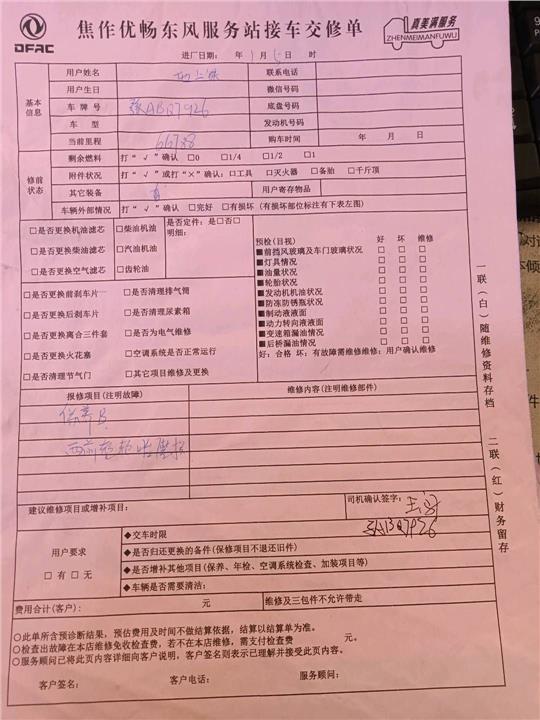 DFAC
焦作优畅东风服务站接车交修单
真美满服务
ZHENMEIMANFUWU
进厂日期： 年 1 月 5 日 时
基本信息
用户姓名
联系电话
用户生日
微信号码
车牌号 豫ABQ7926
底盘号码
车型
发动机号码
当前里程 66788
购车时间 年 月 日
修前状态
剩余燃料 打“√”确认 □0 □1/4 □1/2 □1
附件状况 打“√”或打“×”确认：□工具 □灭火器 □备胎 □千斤顶
其它装备
用户寄存物品
车辆外部情况 打“√”确认 □完好 □有损坏（有损坏部位标注有下表左图）
□是否更换机油滤芯 □柴油机油
□是否更换柴油滤芯 □汽油机油
□是否更换空气滤芯 □齿轮油
是否定件：是□否□
明细：
□是否更换前刹车片 □是否清理排气筒
□是否更换后刹车片 □是否清理尿素箱
□是否更换离合三件套 □是否为电气维修
□是否更换火花塞 □空调系统是否正常运行
□是否清理节气门 □其它项目维修及更换
预检（目视） 好 坏 维修
■前挡风玻璃及车门玻璃状况 □ □ □
■灯具情况 □ □ □
■油量状况 □ □ □
■轮胎状况 □ □ □
■发动机机油状况 □ □ □
■防冻防锈瓶状况 □ □ □
■制动液液面 □ □ □
■动力转向液液面 □ □ □
■变速箱漏油情况 □ □ □
■后桥漏油情况 □ □ □
好：合格 坏：有故障需维修维修：用户确认维修
报修项目（注明故障）
维修内容（注明维修部件）
保养
两前轮胎
建议维修项目或增补项目：
司机确认签字：
豫ABQ7926
用户要求
□有 □无
◆交车时限
◆是否归还更换的备件（保修项目不退还旧件）
◆是否增补其他项目（保养、年检、空调系统检查、加装项目等）
◆车辆是否需要清洁：
费用合计（客户）： 元
维修及三包件不允许带走
○此单所含预诊断结果，预估费用及时间不做结算依据，结算以结算单为准。
○检查出故障在本店维修免收检查费，若不在本店维修，需支付检查费 元。
○服务顾问已将此页内容详细向客户说明，客户签名则表示已理解并接受此页内容。
客户签名： 客户电话： 服务顾问：
一联（白）随维修资料存档 二联（红）财务留存